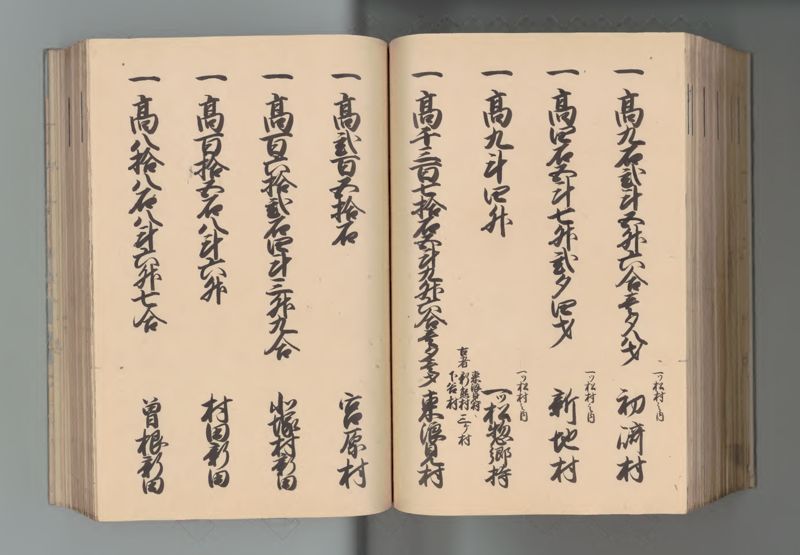 一 高九石弐斗五升六合壱夕八才
一ツ松村之内
初済村
一 高四石五斗七升弐夕四才
一ツ松村之内
新地村
一 高九斗四升
一ツ松村之内
一ツ松惣郷持
一 高千三百七拾石六斗九升六合
古者
東浪見村
村
下谷村
三ヶ村
東浪見村
一 高弐百五拾石
宮原村
一 高百六拾弐石四斗三升九合
小塚村新田
一 高百拾五石八斗六升
村田新田
一 高八拾八石八斗六升七合
曽根新田